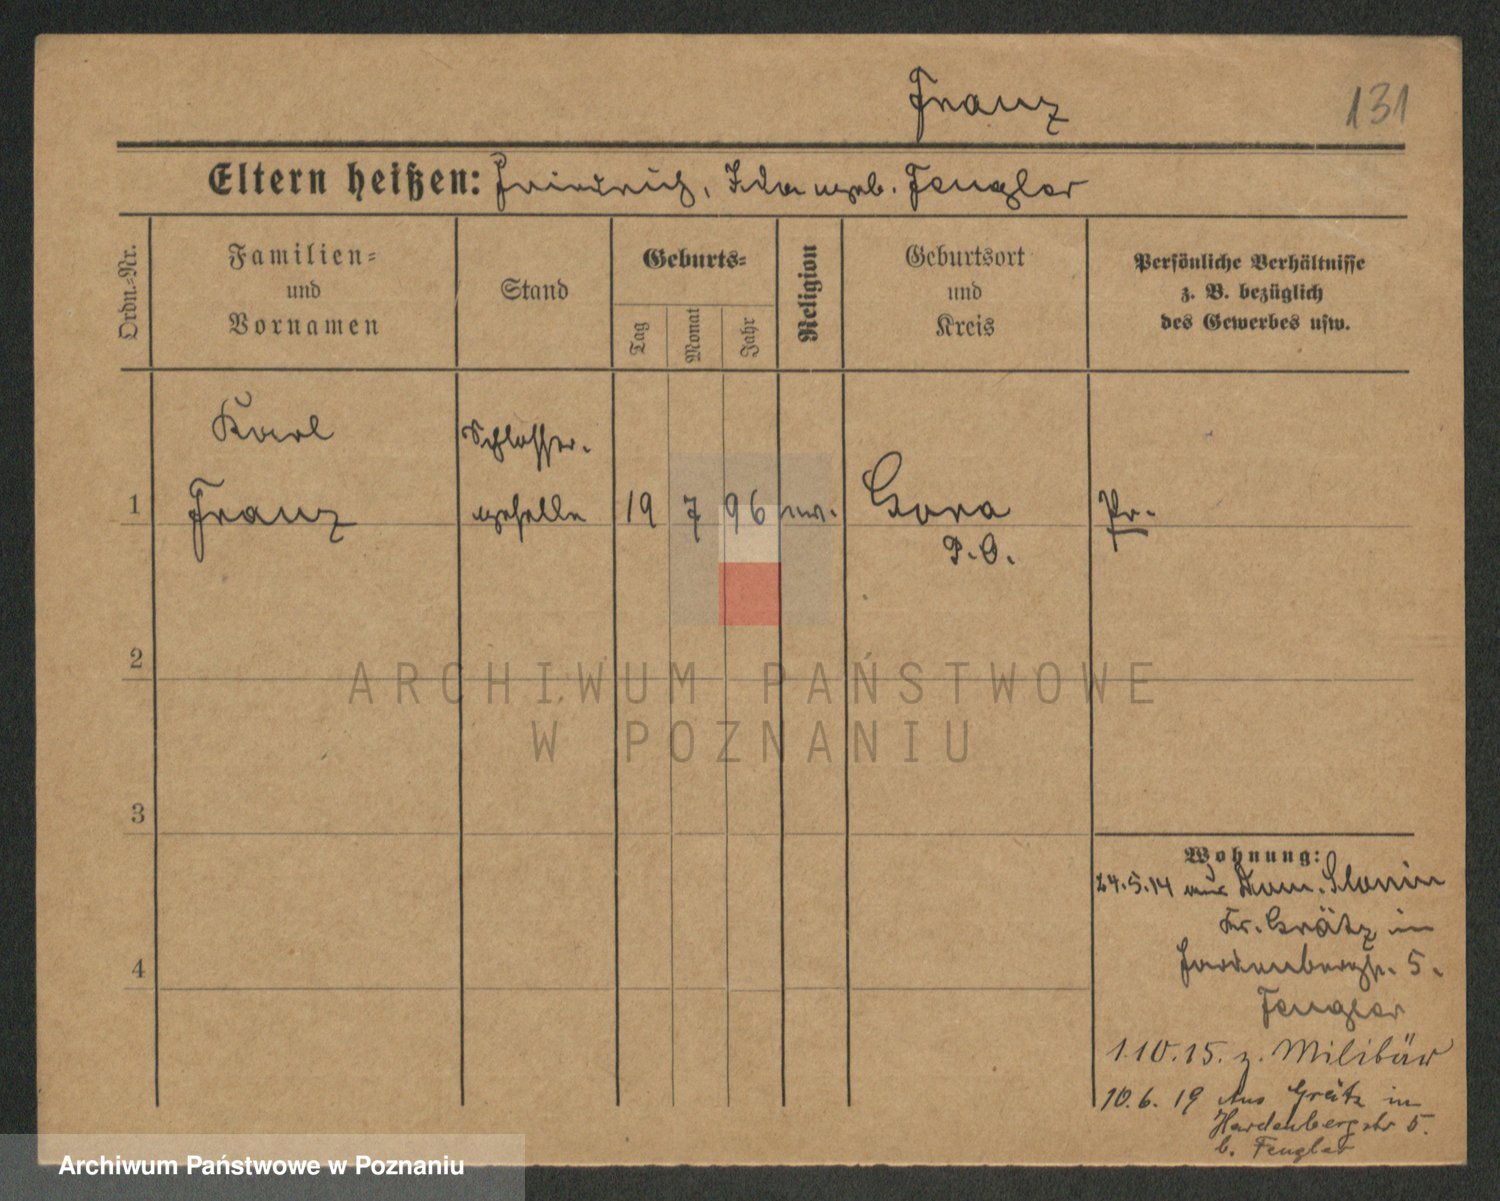 Franz
131
Eltern heißen: Friedrich, Ida geb. Fengler
Ordn.-Nr.
Familien-
und
Vornamen
Stand
Geburts-
Tag
Monat
Jahr
Religion
Geburtsort
und
Kreis
Persönliche Verhältnisse
z. B. bezüglich
des Gewerbes usw.
Karl
Schlosser-
1 Franz geselle 19 7 96 ev. Gora Pr.
P. O.
2
ARCHIWUM PAŃSTWOWE
W POZNANIU
3
4
Wohnung:
24.5.14 aus Dom. Slonin
Kr. Grätz in
Hardenbergstr. 5.
Fengler
1.10.15. z. Militär
10.6.19 Aus Grätz in
Hardenbergstr 5.
b. Fengler
Archiwum Państwowe w Poznaniu